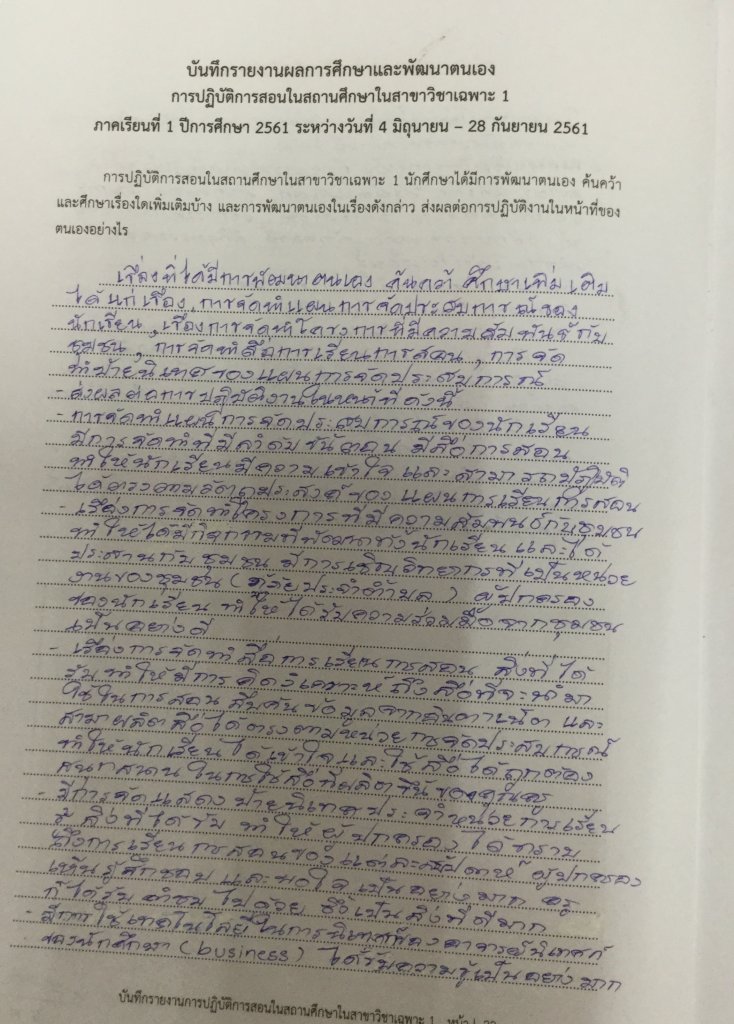 บันทึกรายงานผลการศึกษาและพัฒนาตนเอง
การปฏิบัติการสอนในสถานศึกษาในสาขาวิชาเฉพาะ 1
ภาคเรียนที่ 1 ปีการศึกษา 2561 ระหว่างวันที่ 4 มิถุนายน – 28 กันยายน 2561
การปฏิบัติการสอนในสถานศึกษาในสาขาวิชาเฉพาะ 1 นักศึกษาได้มีการพัฒนาตนเอง ค้นคว้า
และศึกษาเรื่องใดเพิ่มเติมบ้าง และการพัฒนาตนเองในเรื่องดังกล่าว ส่งผลต่อการปฏิบัติงานในหน้าที่ของ
ตนเองอย่างไร
เรื่องที่ได้มีการพัฒนาตนเอง ค้นคว้า ศึกษาเพิ่มเติม
ได้แก่ เรื่อง การจัดทำแผนการจัดประสบการณ์ของ
นักเรียน , เรื่องการจัดทำโครงการที่มีความสัมพันธ์กับ
ชุมชน , การจัดทำสื่อการเรียนการสอน , การจัด
ทำป้ายนิเทศของแผนการจัดประสบการณ์
- ส่งผลต่อการปฏิบัติงานในหน้าที่ ดังนี้
- การจัดทำแผนการจัดประสบการณ์ของนักเรียน
มีการจัดทำที่มีลำดับขั้นตอน มีสื่อการสอน
ทำให้นักเรียนมีความเข้าใจ และสามารถปฏิบัติ
ได้ตรงตามวัตถุประสงค์ของแผนการเรียนการสอน
- เรื่องการจัดทำโครงการที่มีความสัมพันธ์กับชุมชน
ทำให้ได้มีกิจกรรมที่พัฒนาทั้งนักเรียน และได้
ประสานกับชุมชน มีการเชิญวิทยากรที่เป็นหน่วย
งานของชุมชน ( ประจำตำบล ) ผู้ปกครอง
ของนักเรียน ทำให้ได้รับความร่วมมือจากชุมชน
เป็นอย่างดี
- เรื่องการจัดทำสื่อการเรียนการสอน สิ่งที่ได้
รับ ทำให้มีการคิดวิเคราะห์ถึงสื่อที่จะนำมา
ใช้ในการสอน สืบค้นข้อมูลจากอินเตอร์เน็ต และ
สามาผลิตสื่อได้ตรงตามหน่วยการจัดประสบการณ์
ทำให้นักเรียนได้เข้าใจและใช้สื่อได้ถูกต้อง
สนุกสนาน ในการใช้สื่อที่ผลิตขึ้นของคุณครู
- มีการจัดแสดงป้ายนิเทศประจำหน่วยการเรียน
รู้ สิ่งที่ได้รับ ทำให้ผู้ปกครองได้ทราบ
ถึงการเรียนการสอนของแต่ละสัปดาห์ ผู้ปกครอง
เห็นรู้สึกชอบ และพอใจเป็นอย่างมาก ครู
ก็ได้รับคำชมไปด้วย ซึ่งเป็นสิ่งที่ดีมาก
- มีการใช้เทคโนโลยีในการนิเทศของอาจารย์นิเทศก์
ของนักศึกษา (business) ได้รับความรู้เป็นอย่างมาก
บันทึกรายงานการปฏิบัติการสอนในสถานศึกษาในสาขาวิชาเฉพาะ 1 หน้า